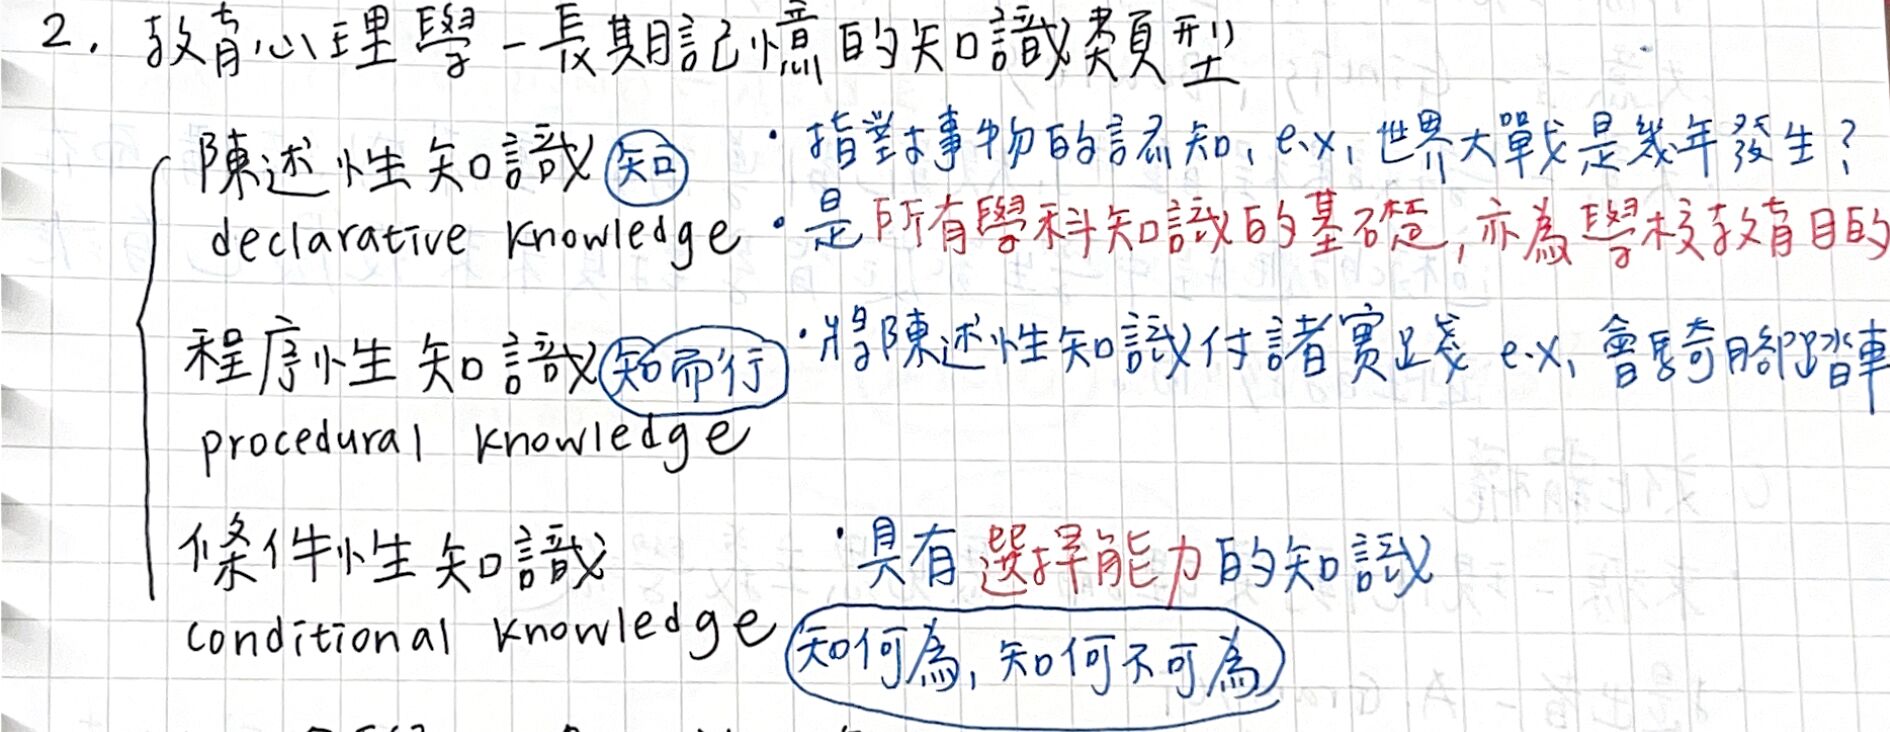 2. 教育心理學-長期記憶的知識類型
陳述性知識 知 ·指對事物的認知, e.x, 世界大戰是幾年發生?
declarative knowledge ·是所有學科知識的基礎, 亦為學校教育目的
程序性知識 知而行 ·將陳述性知識付諸實踐 e.x, 會騎腳踏車
procedural knowledge
條件性知識 ·具有選擇能力的知識
conditional knowledge 知何為, 知何不可為